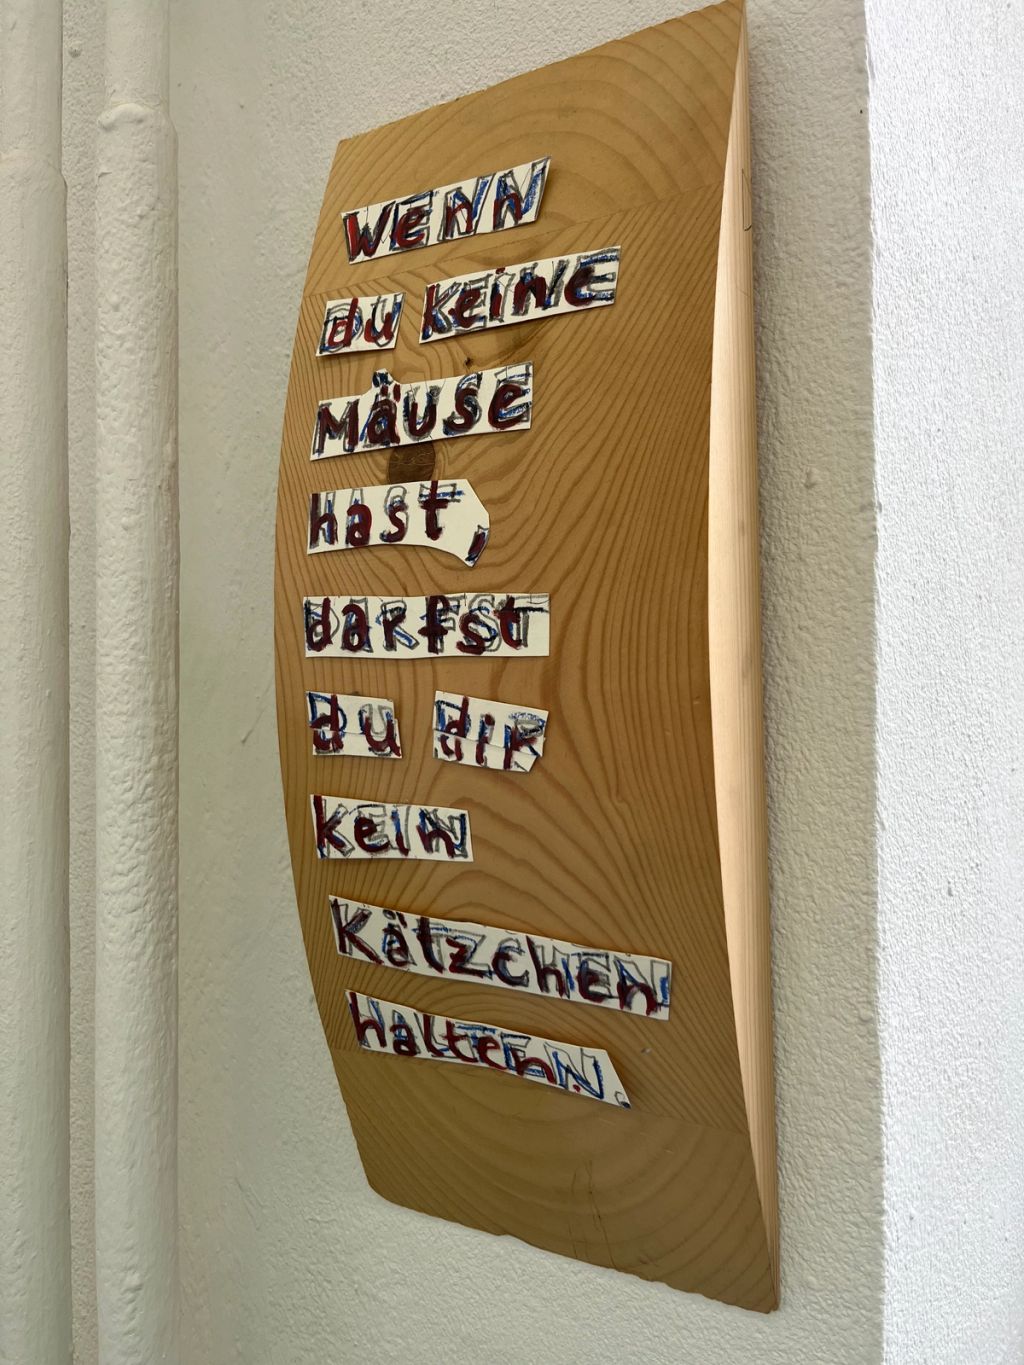 Wenn
du keine
Mäuse
hast,
darfst
du dir
kein
Kätzchen
halten.